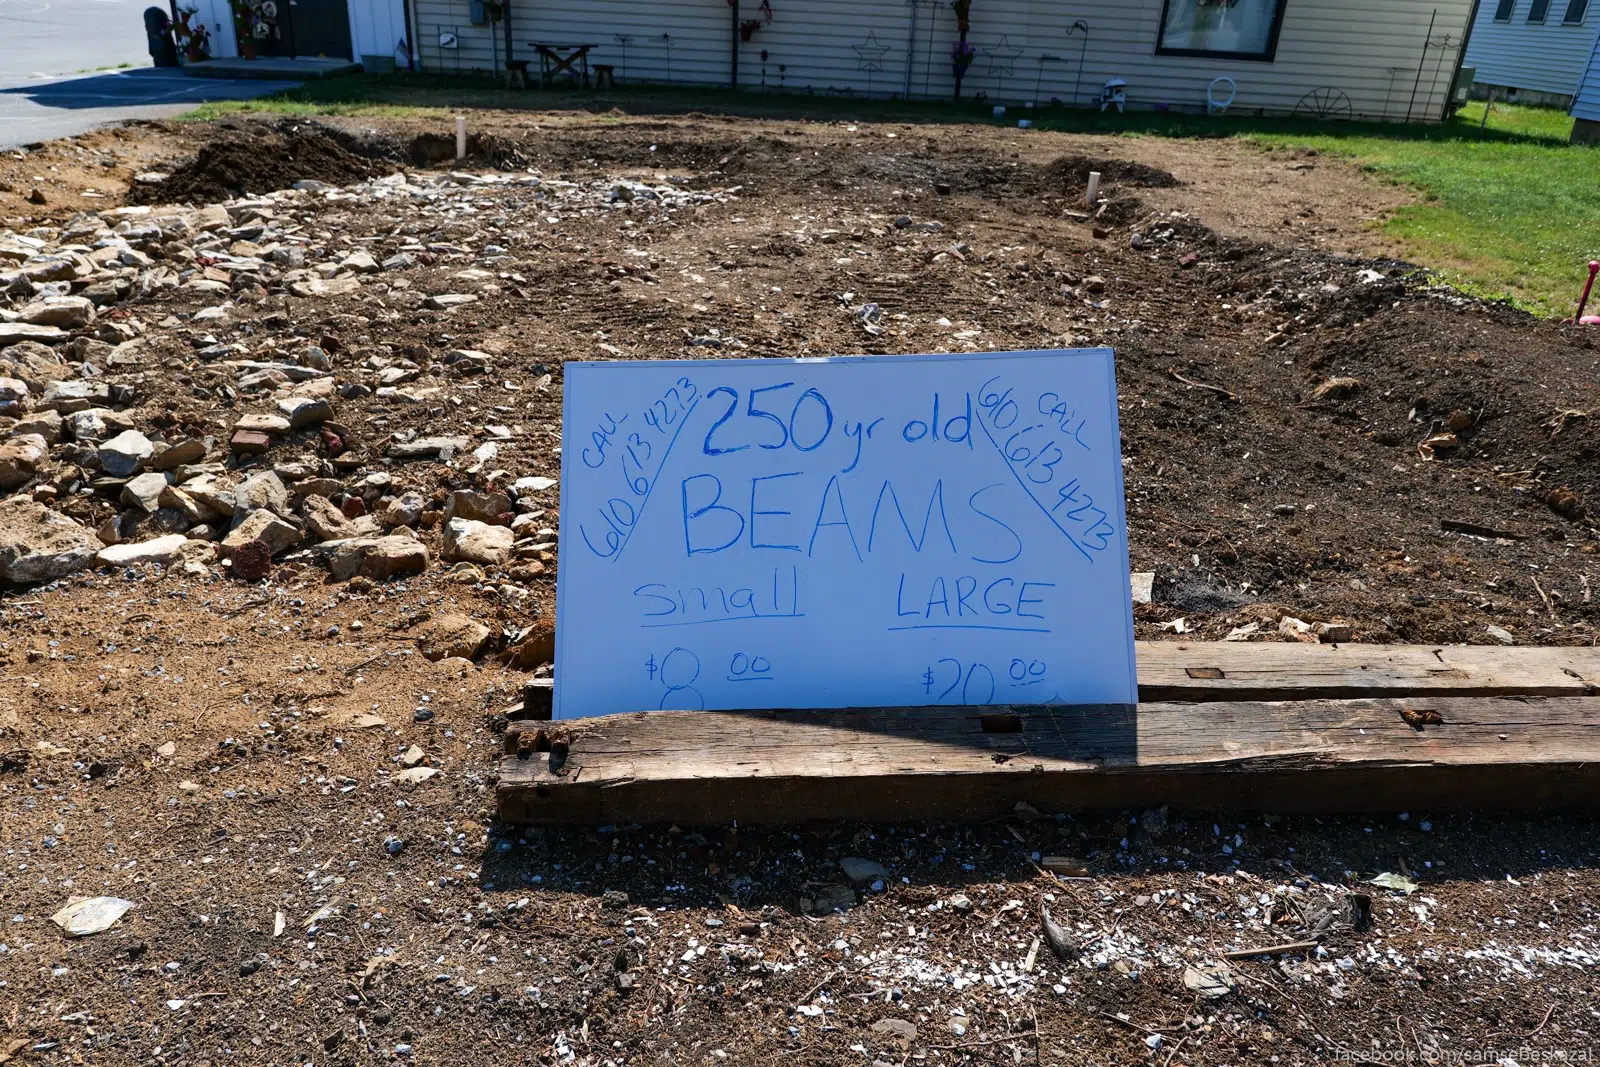 CALL
610 613 4273
250 yr old
CALL
610 613 4273
BEAMS
small LARGE
$8 00 $20 00
facebook.com/samsebeskazal